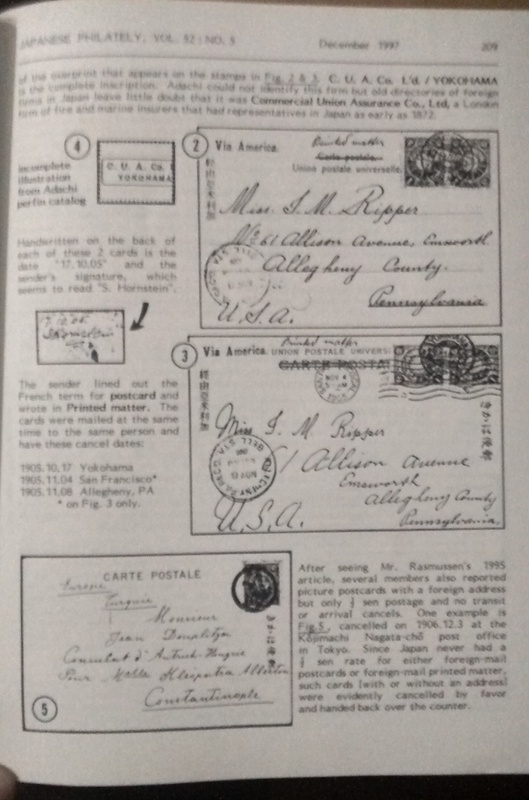 JAPANESE PHILATELY, VOL. 52 : NO. 5 December 1997 209
of the overprint that appears on the stamps in Fig. 2 & 3. C. U. A. Co. L'd. / YOKOHAMA
is the complete inscription. Adachi could not identify this firm but old directories of foreign
firms in Japan leave little doubt that it was Commercial Union Assurance Co., Ltd, a London
firm of fire and marine insurers that had representatives in Japan as early as 1872.
4
C. U. A. Co.
YOKOHAMA
Incomplete
illustration
from Adachi
perfin catalog
Handwritten on the back of
each of these 2 cards is the
date "17.10.05" and the
sender's signature, which
seems to read "S. Hornstein".
The sender lined out the
French term for postcard and
wrote in Printed matter. The
cards were mailed at the same
time to the same person and
have these cancel dates:
1905.10.17 Yokohama
1905.11.04 San Francisco*
1905.11.08 Allegheny, PA
* on Fig. 3 only.
2
Via America.
Printed matter
Carte postale.
Union postale universelle.
經由亞米利加
Miss. I. M. Ripper
No 261 Allison Avenue, Emsworth
Allegheny County.
Pennsylvania
U. S. A.
3
Via America.
Printed matter
UNION POSTALE UNIVERS
CARTE POSTA
經由亞米利加
きかは便郵
Miss I. M. Ripper
1 Allison Avenue
Emsworth
Allegheny County
Pennsylvania
U. S. A.
5
CARTE POSTALE
きかは便郵
Turquie
Monsieur
Jean
Consulat d'Autriche-Hongrie
Pour
Constantinople
After seeing Mr. Rasmussen's 1995
article, several members also reported
picture postcards with a foreign address
but only ½ sen postage and no transit
or arrival cancels. One example is
Fig.5, cancelled on 1906.12.3 at the
Kojimachi Nagata-chō post office
in Tokyo. Since Japan never had a
½ sen rate for either foreign-mail
postcards or foreign-mail printed matter,
such cards [with or without an address]
were evidently cancelled by favor
and handed back over the counter.